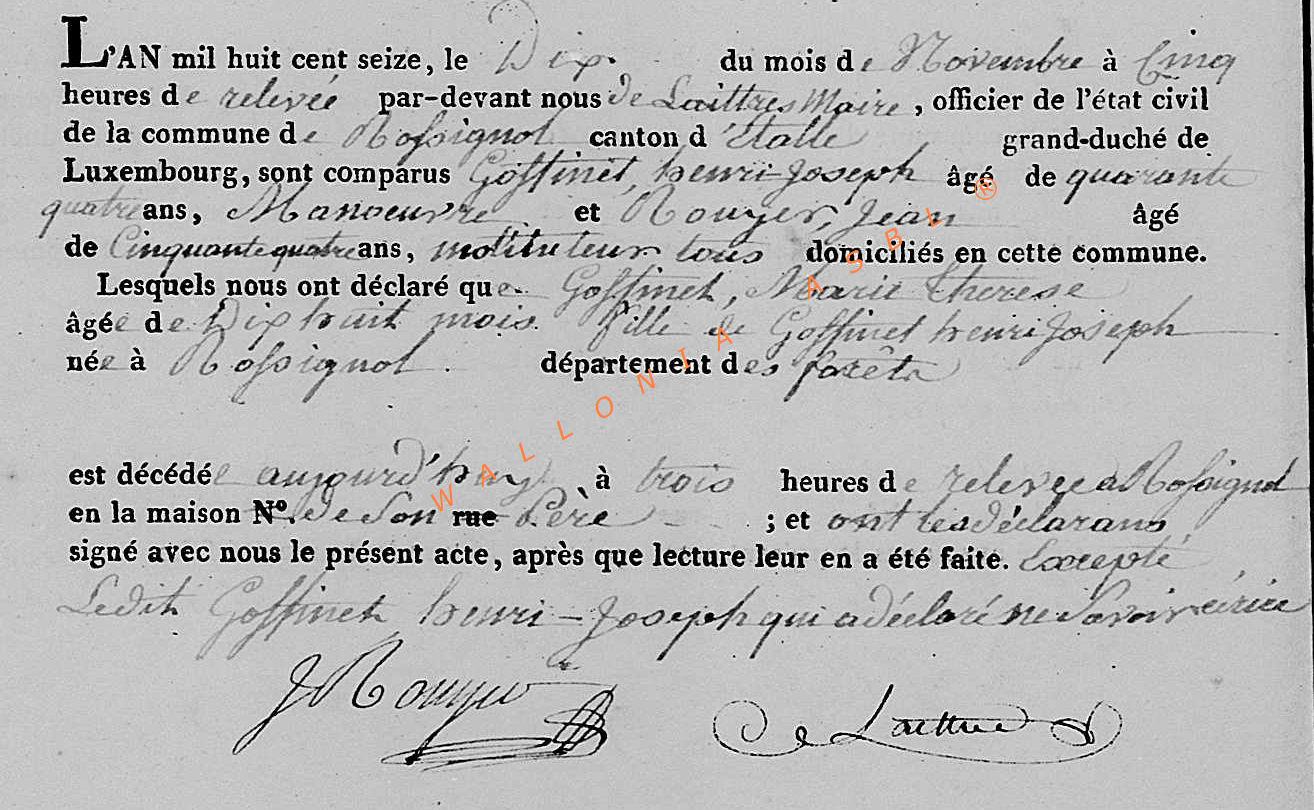 L'AN mil huit cent seize, le Dix du mois de Novembre à Cinq
heures de relevée par-devant nous de Laittres Maire, officier de l'état civil
de la commune de Rossignol canton d'Etalle grand-duché de
Luxembourg, sont comparus Goffinet, henri-Joseph âgé de quarante
quatre ans, Manoeuvre et Rouyer, Jean âgé
de Cinquante quatre ans, instituteur tous domiciliés en cette commune.
Lesquels nous ont déclaré que Goffinet, Marie therese
âgée de Dix huit mois. fille de Goffinet henri Joseph
née à Rossignol. département des forêts
est décédée aujourd'huy à trois heures de relevee a Rossignol
en la maison N°. de Son rue Père ; et ont les déclarans
signé avec nous le présent acte, après que lecture leur en a été faite. Excepté
Ledit Goffinet henri-Joseph qui a déclaré ne Savoir écrire
J Rouyer
De Laittre
WALLONIA ASBL ®